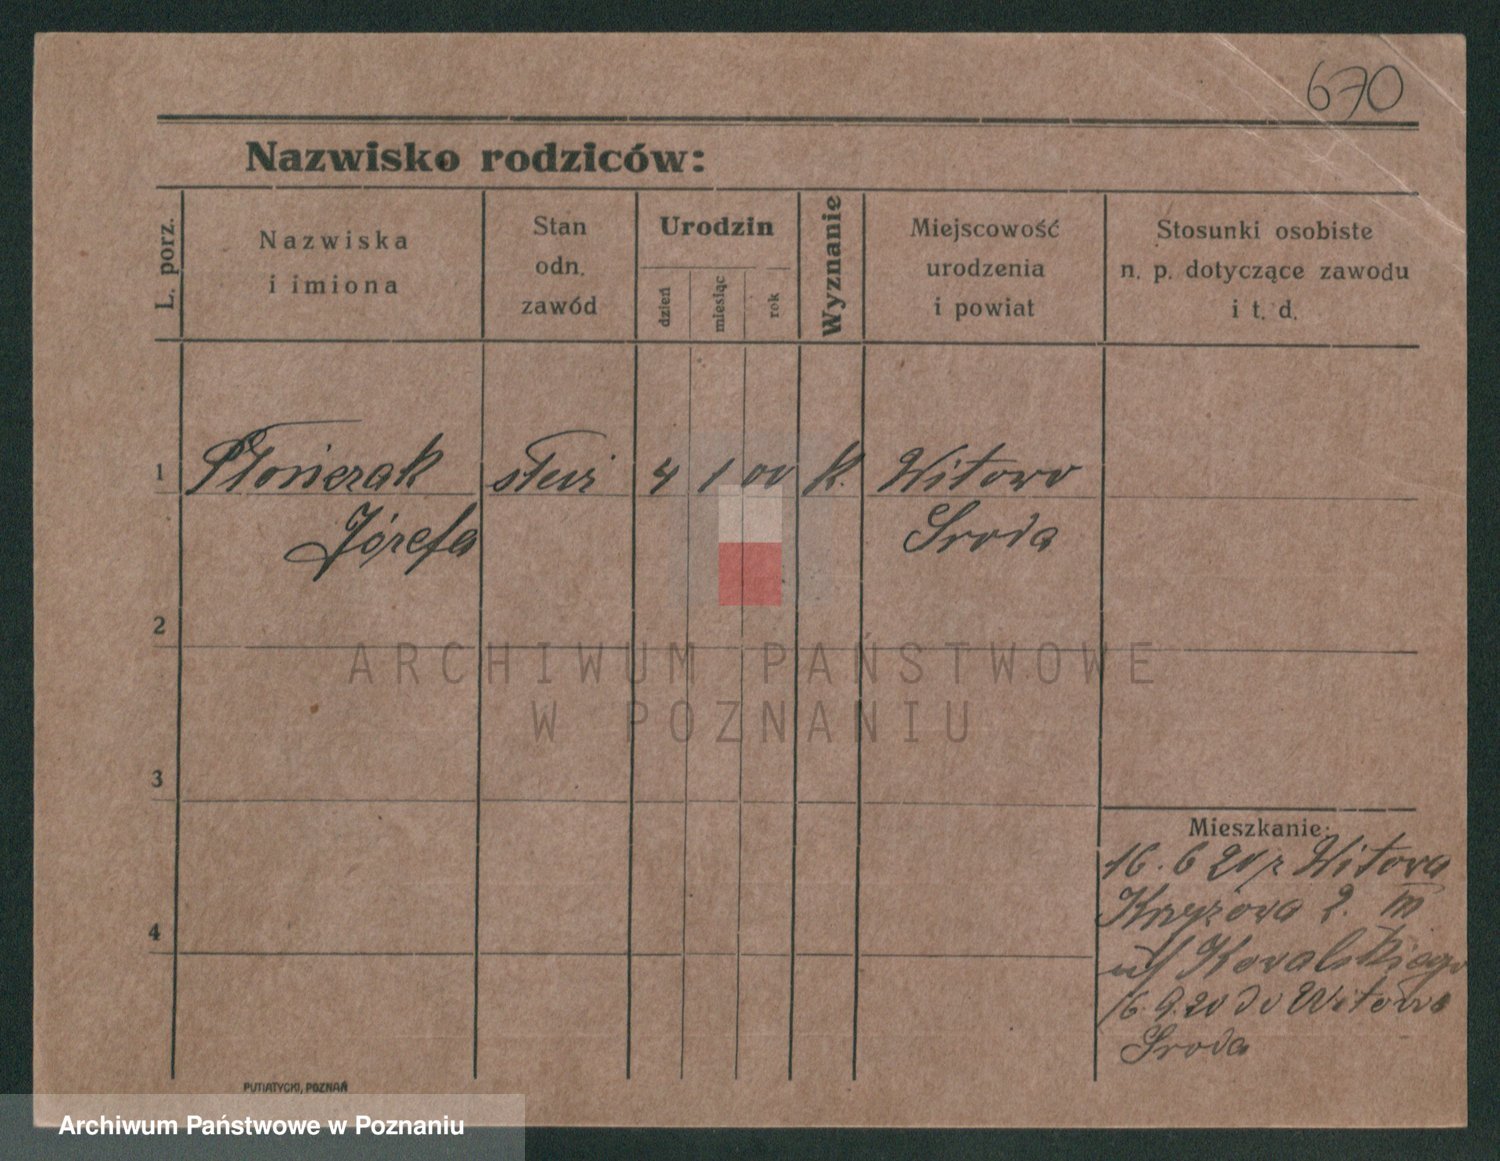 670
Nazwisko rodziców:
L. porz.
Nazwiska
i imiona
Stan
odn.
zawód
Urodzin
dzień
miesiąc
rok
Wyznanie
Miejscowość
urodzenia
i powiat
Stosunki osobiste
n. p. dotyczące zawodu
i t. d.
1 służ 4 1 00 k. Witowo
Józefa Sroda
2
ARCHIWUM PAŃSTWOWE
W POZNANIU
3
Mieszkanie:
16. 6 20 z Witowa
Krzyżowa 2. III
4
u/ Kowalskiego
16. 9. 20 do Witowa
Sroda
PUTIATYCKI, POZNAŃ
Archiwum Państwowe w Poznaniu